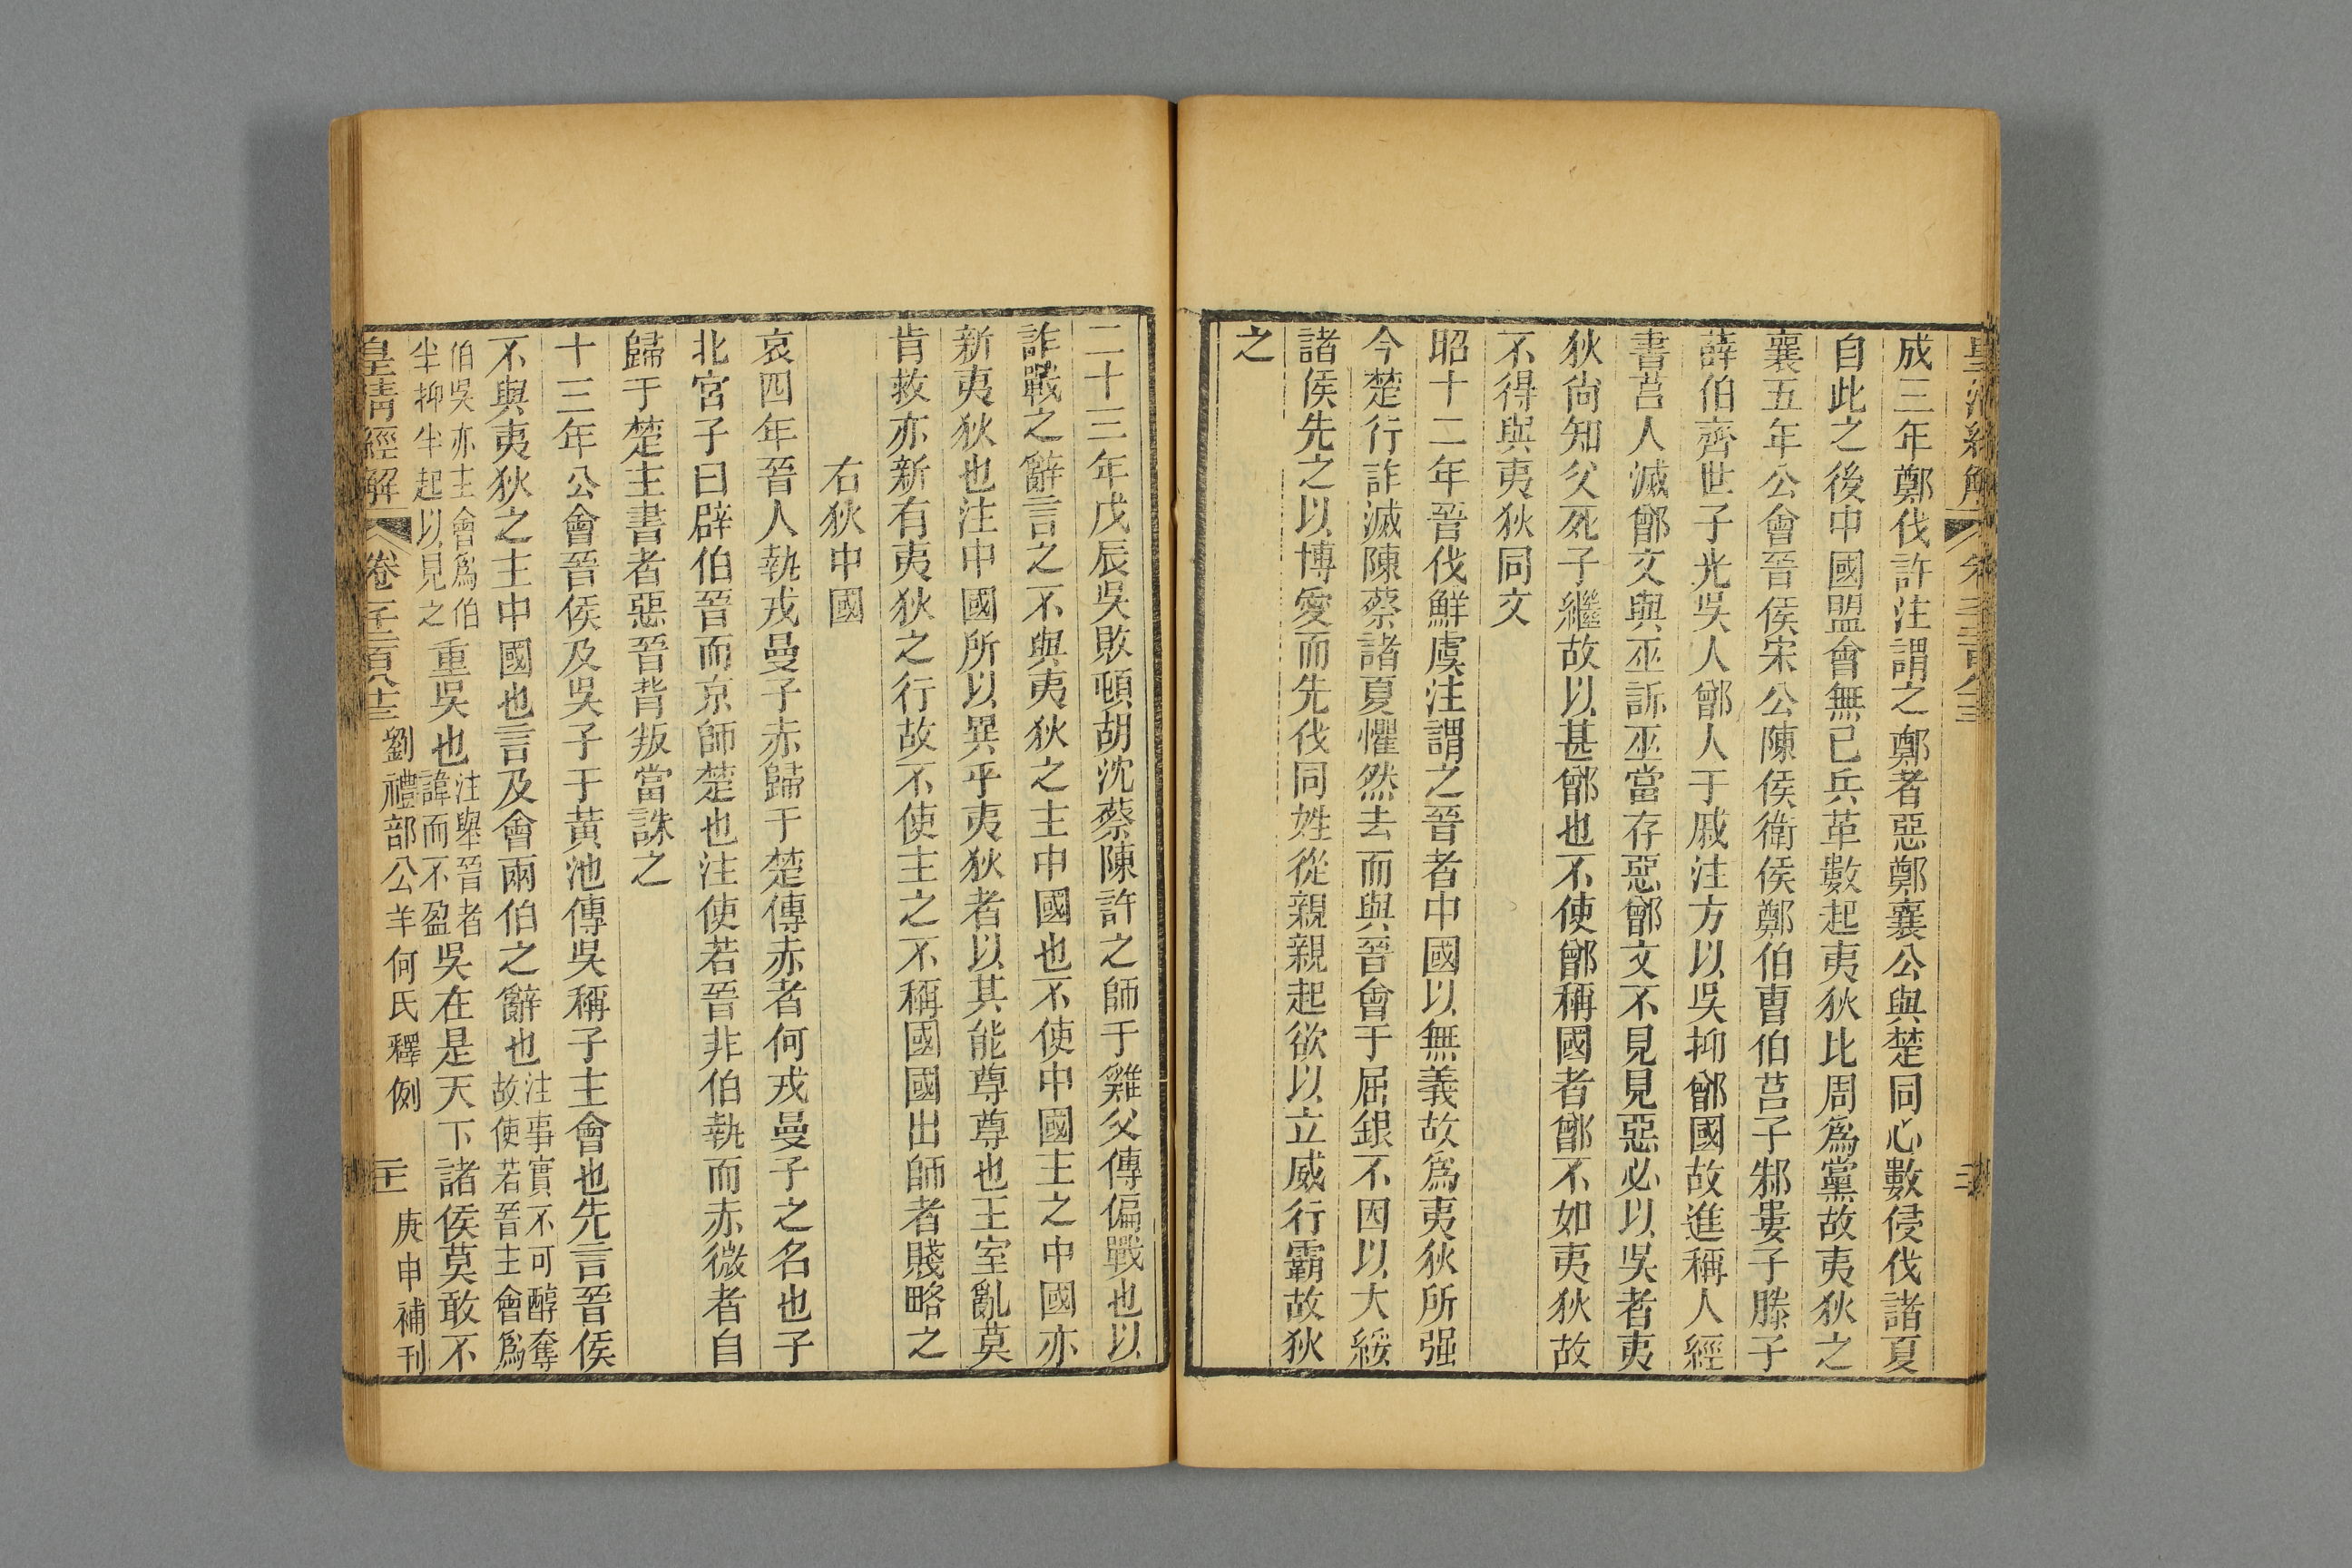 成三年鄭伐許注謂之鄭者惡鄭襄公與楚同心數侵伐諸夏
自此之後中國盟會無已兵革數起夷狄比周爲黨故夷狄之
襄五年公會晉侯宋公陳侯衛侯鄭伯曹伯莒子邾婁子滕子
薛伯齊世子光吳人鄫人于戚注方以吳抑鄫國故進稱人經
書莒人滅鄫文與巫訴巫當存惡鄫文不見見惡必以吳者夷
狄尙知父死子繼故以甚鄫也不使鄫稱國者鄫不如夷狄故
不得與夷狄同文
昭十二年晉伐鮮虞注謂之晉者中國以無義故爲夷狄所强
今楚行詐滅陳蔡諸夏懼然去而與晉會于屈銀不因以大綏
諸侯先之以博愛而先伐同姓從親親起欲以立威行霸故狄
之
二十三年戊辰吳敗頓胡沈蔡陳許之師于雞父傳偏戰也以
詐戰之辭言之不與夷狄之主中國也不使中國主之中國亦
新夷狄也注中國所以異乎夷狄者以其能尊尊也王室亂莫
肯救亦新有夷狄之行故不使主之不稱國國出師者賤略之
右狄中國
哀四年晉人執戎曼子赤歸于楚傳赤者何戎曼子之名也子
北宮子曰辟伯晉而京師楚也注使若晉非伯執而赤微者自
歸于楚主書者惡晉背叛當誅之
十三年公會晉侯及吳子于黃池傳吳稱子主會也先言晉侯
不與夷狄之主中國也言及會兩伯之辭也注事實不可醇奪故使若晉主會爲
伯吳亦主會爲伯半抑半起以見之重吳也注舉晉者諱而不盈吳在是天下諸侯莫敢不
皇清經解 卷千二百八十三 劉禮部公羊何氏釋例 二十 庚申補刊